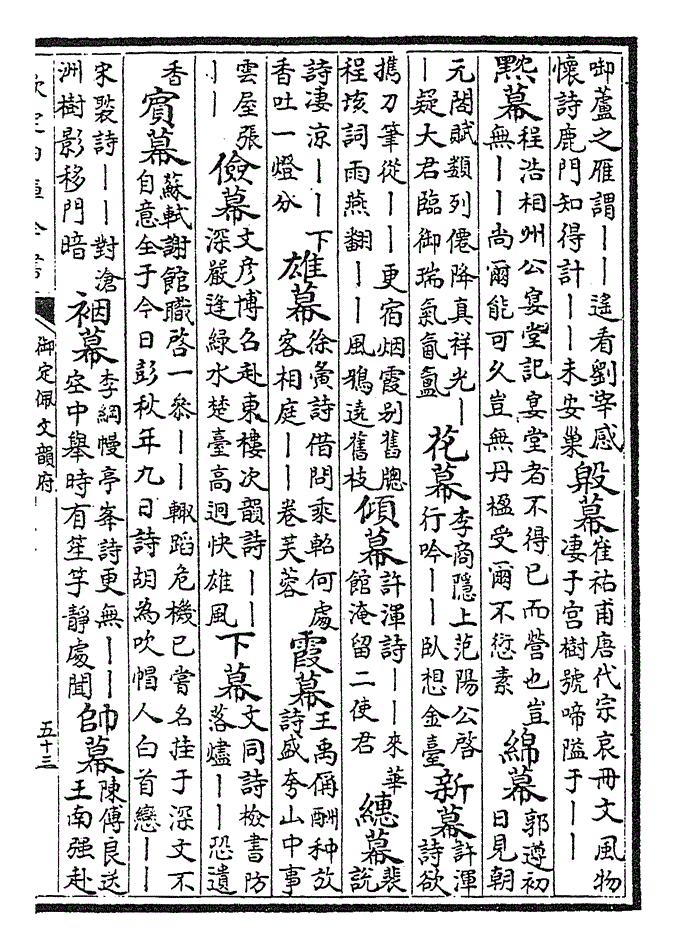 啣蘆之雁謂——遙看劉宰感
懷詩鹿門知得計——未安巢
殿幕
崔祐甫唐代宗哀冊文風物
凄于宫樹號啼隘于——
幕
程浩相州公宴堂記宴堂者不得已而營也豈
無——尚爾能可久豈無丹楹受爾不愆素
綿幕
郭遵初
日見朝
元閤賦類列僊降真祥光—
—疑大君臨御瑞氣氤氳
花幕
李商隱上范陽公啓
行吟——卧想金臺
新幕
許渾
詩欲
攜刀筆從——更宿烟霞别舊牕
程垓詞雨燕翻——風鴉遶舊枝
傾幕
許渾詩——來華
館淹留二使君
繐幕
裴
說
詩凄涼——下
香吐一燈分
雄幕
徐夤詩借問乘軺何處
客相庭——卷芙蓉
霞幕
王禹偁酬种放
詩盛夸山中事
雲屋張
——
儉幕
文彦博召赴東樓次韻詩——
深嚴逢緑水楚臺高迥快雄風
下幕
文同詩檢書防
落燼——恐遺
香
賓幕
蘇軾謝館職啓一參——輙蹈危機已嘗名挂于深文不
自意全于今日彭秋年九日詩胡為吹帽人白首戀——
宋褧詩——對滄
洲樹影移門暗
裀幕
李綱幔亭峯詩更無——
空中舉時有笙竽靜處聞
帥幕
陳傅良送
王南强赴
欽定四庫全書
御定佩文韻府
五十三